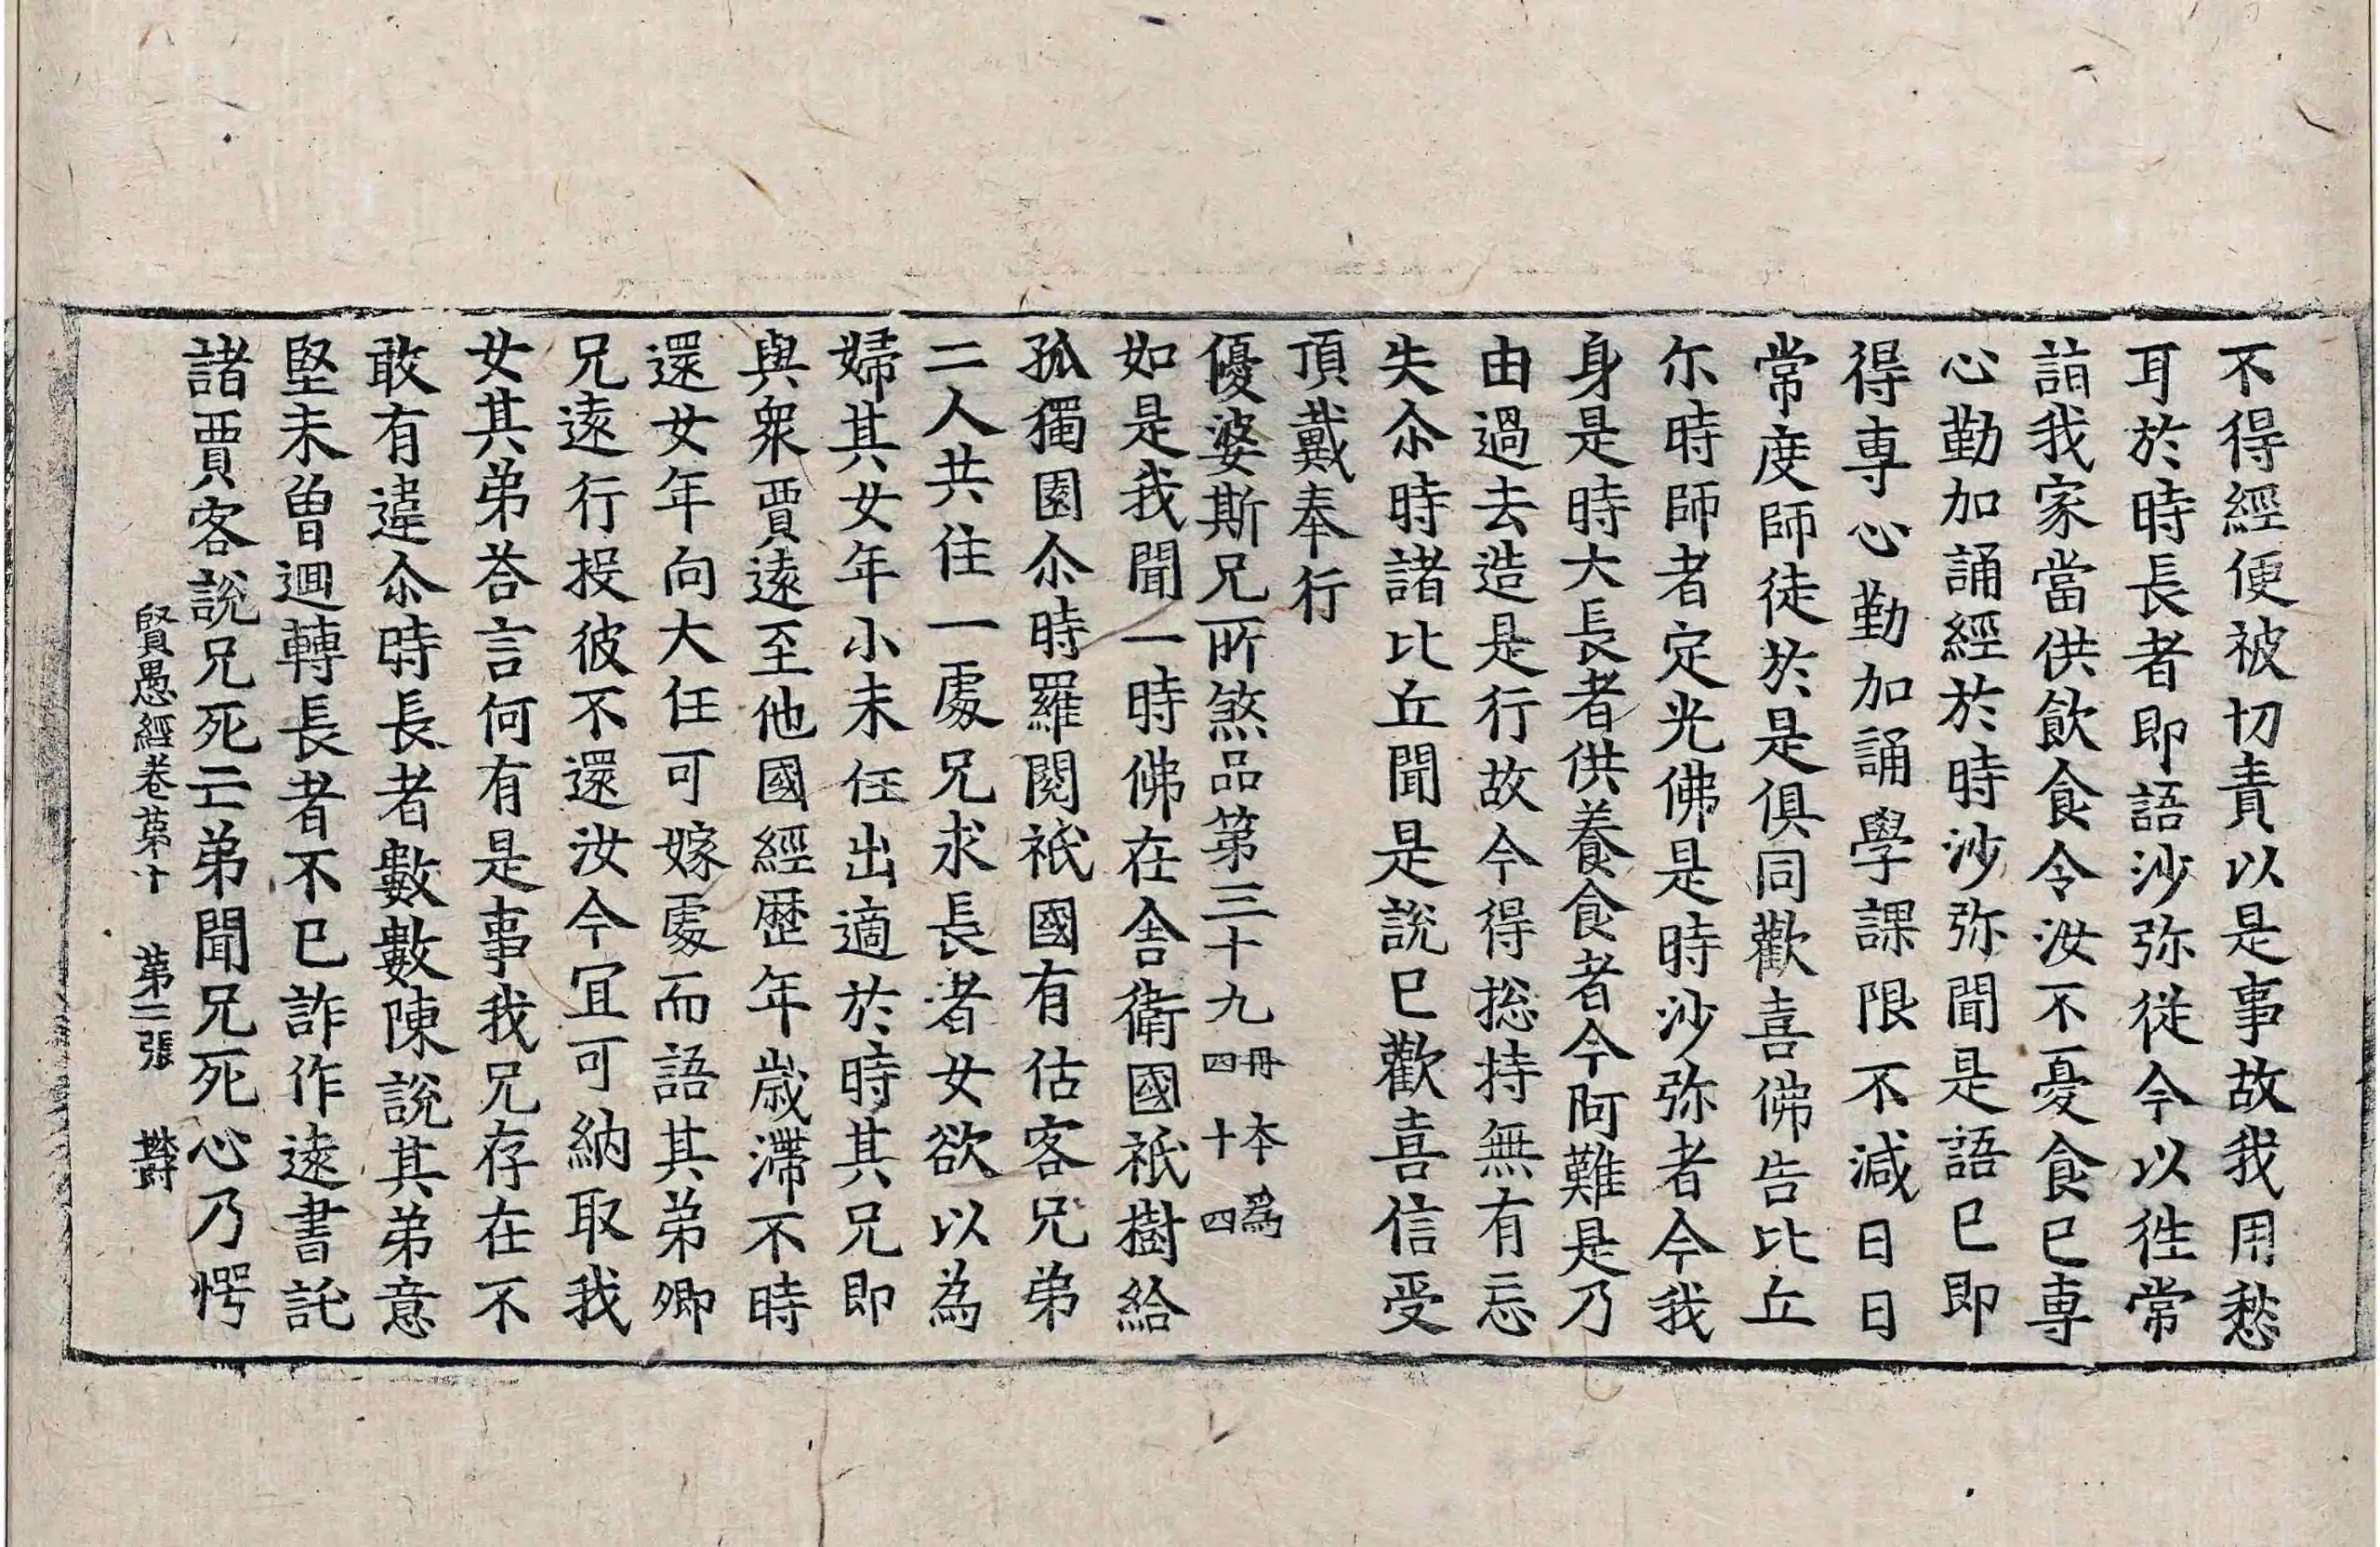 不得經便被切責以是事故我用愁
耳於時長者即語沙弥從今以徃常
詣我家當供飲食令汝不憂食已専
心勤加誦經於時沙弥聞是語已即
得専心勤加誦學課限不減日日
常度師徒於是俱同歡喜佛告比丘
尒時師者定光佛是時沙弥者今我
身是時大長者供養食者今阿難是乃
由過去造是行故今得捴持無有忘
失尒時諸比丘聞是說已歡喜信受
頂戴奉行
優婆斯兄所煞品第三十九 冊本爲四十四
如是我聞一時佛在舍衛國祇樹給
孤獨園尒時羅閱祇國有估客兄弟
二人共住一處兄求長者女欲以為
婦其女年小未任出適於時其兄即
與衆賈逺至他國經歴年歲滯不時
還女年向大任可嫁處而語其弟卿
兄逺行投彼不還汝今冝可納取我
女其弟荅言何有是事我兄存在不
敢有違尒時長者數數陳說其弟意
堅未曾迴轉長者不已詐作逺書託
諸賈客說兄死亡弟聞兄死心乃愕
賢愚經卷第十 第二張 欝